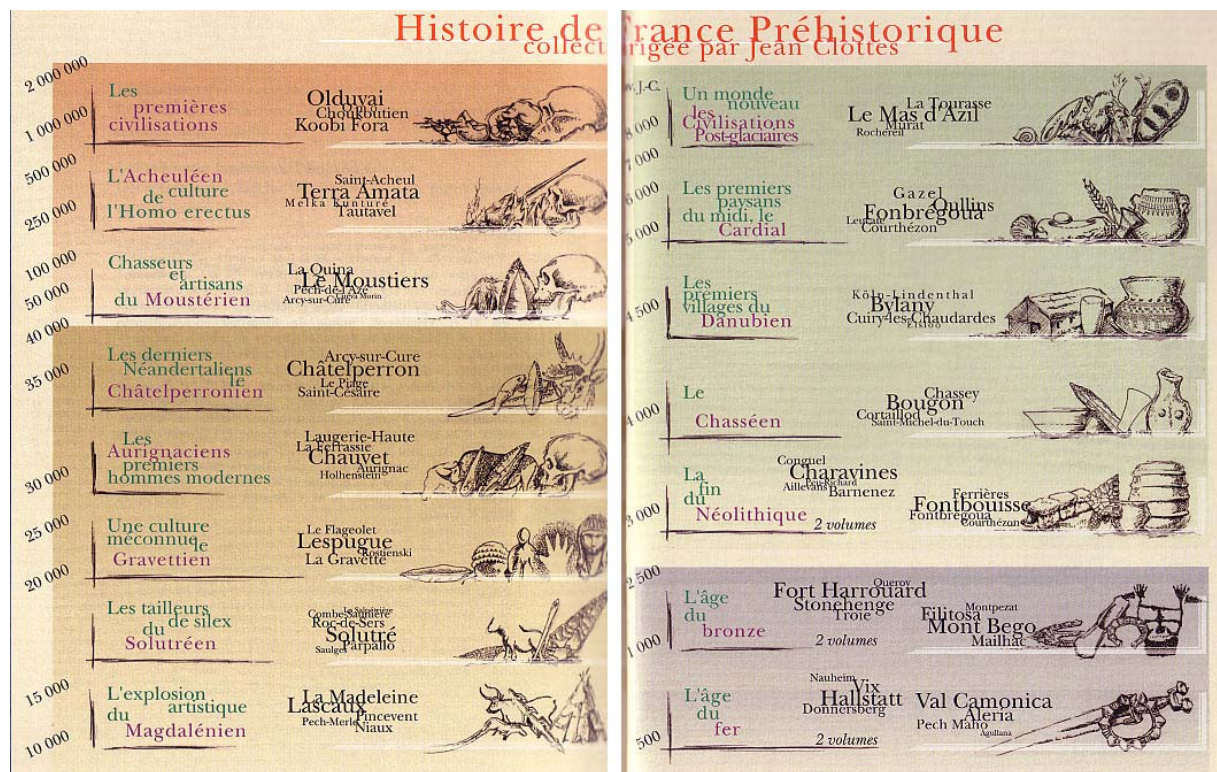 Histoire de France Préhistorique
collect dirigée par Jean Clottes
2 000 000
1 000 000
Les
premières
civilisations
Olduvai
Omo
Choukoutien
Koobi Fora
500 000
250 000
L'Acheuléen
de culture
l'Homo erectus
Saint-Acheul
Terra Amata
Melka Kunturé
Tautavel
100 000
50 000
Chasseurs
et
artisans
du Moustérien
La Quina
Le Moustiers
Pech-de-l'Azé
Cueva Morin
Arcy-sur-Cure
40 000
35 000
Les derniers
Néandertaliens
le
Châtelperronien
Arcy-sur-Cure
Châtelperron
Le Piage
Saint-Césaire
30 000
Les
Aurignaciens
premiers
hommes modernes
Laugerie-Haute
La Ferrassie
Chauvet
Aurignac
Holhenstein
25 000
20 000
Une culture
méconnue le
Gravettien
Le Flageolet
Lespugue
Kostienski
La Gravette
Les tailleurs
de silex
du
Solutréen
Combe-Saunière
Roc-de-Sers
Solutré
Parpallo
Saulges
15 000
10 000
L'explosion
artistique
du
Magdalénien
La Madeleine
Lascaux
Pincevent
Pech-Merle
Niaux
v. J.-C.
8 000
Un monde
nouveau
les
Civilisations
Post-glaciaires
La Tourasse
Le Mas d'Azil
Murat
Rochereil
7 000
6 000
5 000
Les premiers
paysans
du midi, le
Cardial
Gazel
Oullins
Fonbrégoua
Leucate
Courthézon
4 500
Les
premiers
villages du
Danubien
Köln-Lindenthal
Bylany
Cuiry-les-Chaudardes
Elsloo
4 000
Le
Chasséen
Chassey
Bougon
Cortaillod
Saint-Michel-du-Touch
3 000
La
fin
du
Néolithique
2 volumes
Conguel
Charavines
Aillevans
Barnenez
Ferrières
Fontbouisse
Fontbrégoua
Courthézon
2 500
1 000
L'âge
du
bronze
2 volumes
Queroy
Fort Harrouard
Stonehenge
Troie
Montpezat
Filitosa
Mont Bego
Mailhac
500
L'âge
du
fer
2 volumes
Nauheim
Vix
Hallstatt
Donnersberg
Val Camonica
Aleria
Pech Maho
Agullana